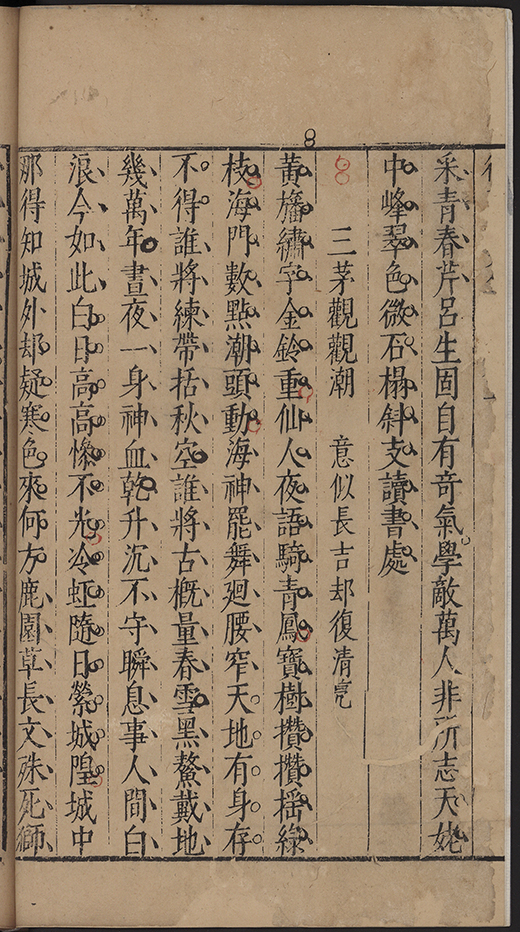 8
采青春芹呂生固自有奇氣學敵萬人非所志天姥
中峰翠色微石榻斜支讀書處
8
三茅觀觀潮 意似長吉却復清亮
黃旛繡字金鈴重仙人夜語騎青鳳寶樹攢攢揺綠
枝海門數點潮頭動海神罷舞迴腰窄天地有身存
不得誰將練帶括秋空誰將古概量春雪黑鰲戴地
幾萬年晝夜一身神血乾升沉不守瞬息事人間白
浪今如此白日高高慘不光冷虹隨日縈城隍城中
那得知城外却疑寒色來何方鹿園草長文殊死獅